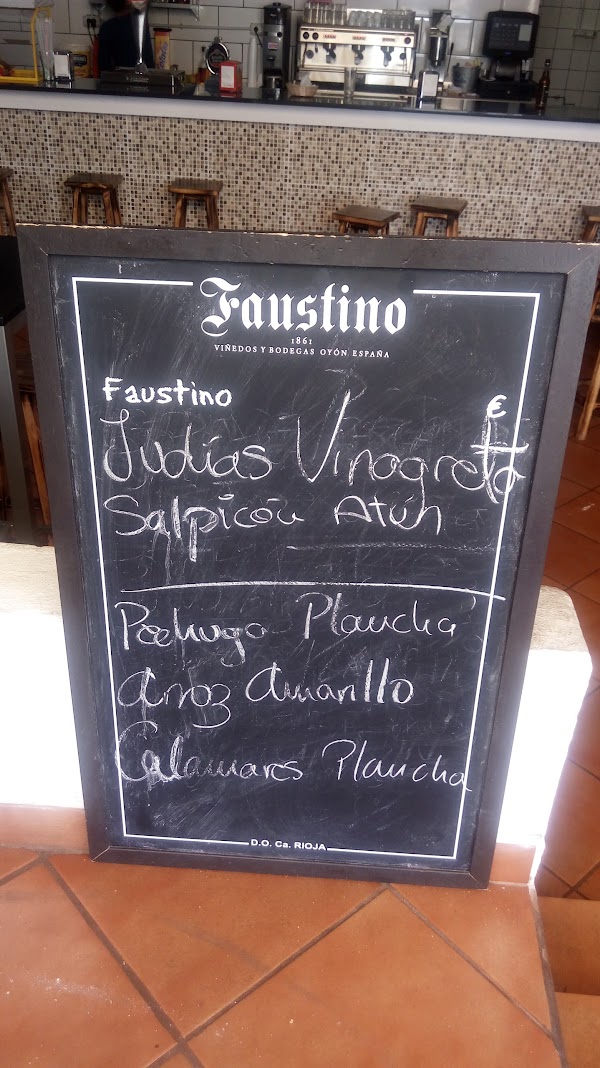 Faustino
1861
VIÑEDOS Y BODEGAS OYÓN ESPAÑA
Faustino €
Judías Vinagreta
Salpicón Atún
Pechuga Plancha
Arroz Amarillo
Calamares Plancha
D.O. Ca. RIOJA